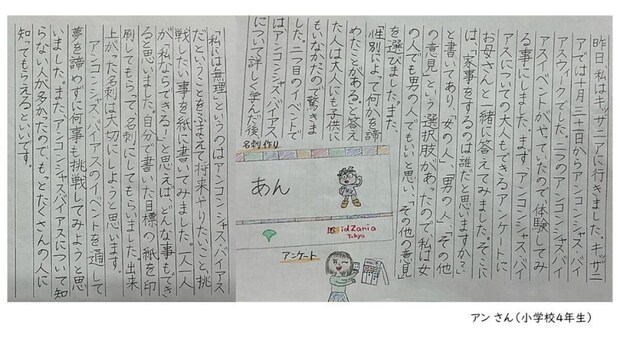 昨日私はキッザニアに行きました。キッザニ
アでは十月三十日からアンコンシャス・バイ
アスウィクでした。二つのアンコンシャス・バイ
アスイベントがやっていたので、体験してみ
る事にしました。まず、アンコンシャス・バイ
アスについての大人もできるアンケートに
お母さんと一緒に答えてみました。そこに
は、「家事をするのは誰だと思いますか?」
と書いてあり、「女の人」、「男の人」、「その他
の意見」という選択肢があったので、私は女
の人でも男の人でもいいと思い、「その他の意見」
を選びました。また、
「性別によって何かを諦
めたことがある」と答え
た人は大人にも子供に
もいなかたので驚きま
した。二つ目のイベントで
はアンコンシャス・バイアス
について詳しく学んだ後、
名刺作り
あん
KidZania
Tokyo
アンケート
「私には無理」というのはアンコンシャス・バイアス
だということをふまえて将来やりたいこと、挑
戦したい事を紙に書いてみました。一人一人
が「私ならできる!」と思えば、どんな事もでき
ると思いました。自分で書いた目標の紙を印
刷してもらって、名刺にしてもらいました。出来
上がった名刺は大切にしようと思います。
アンコンシャス・バイアスのイベントを通して
夢を諦めずに何事も挑戦してみようと思
いました。また、アンコンシャス・バイアスについて知
らない人が多かったので、もっとたくさんの人に
知ってもらえるといいです。
アンさん(小学校4年生)